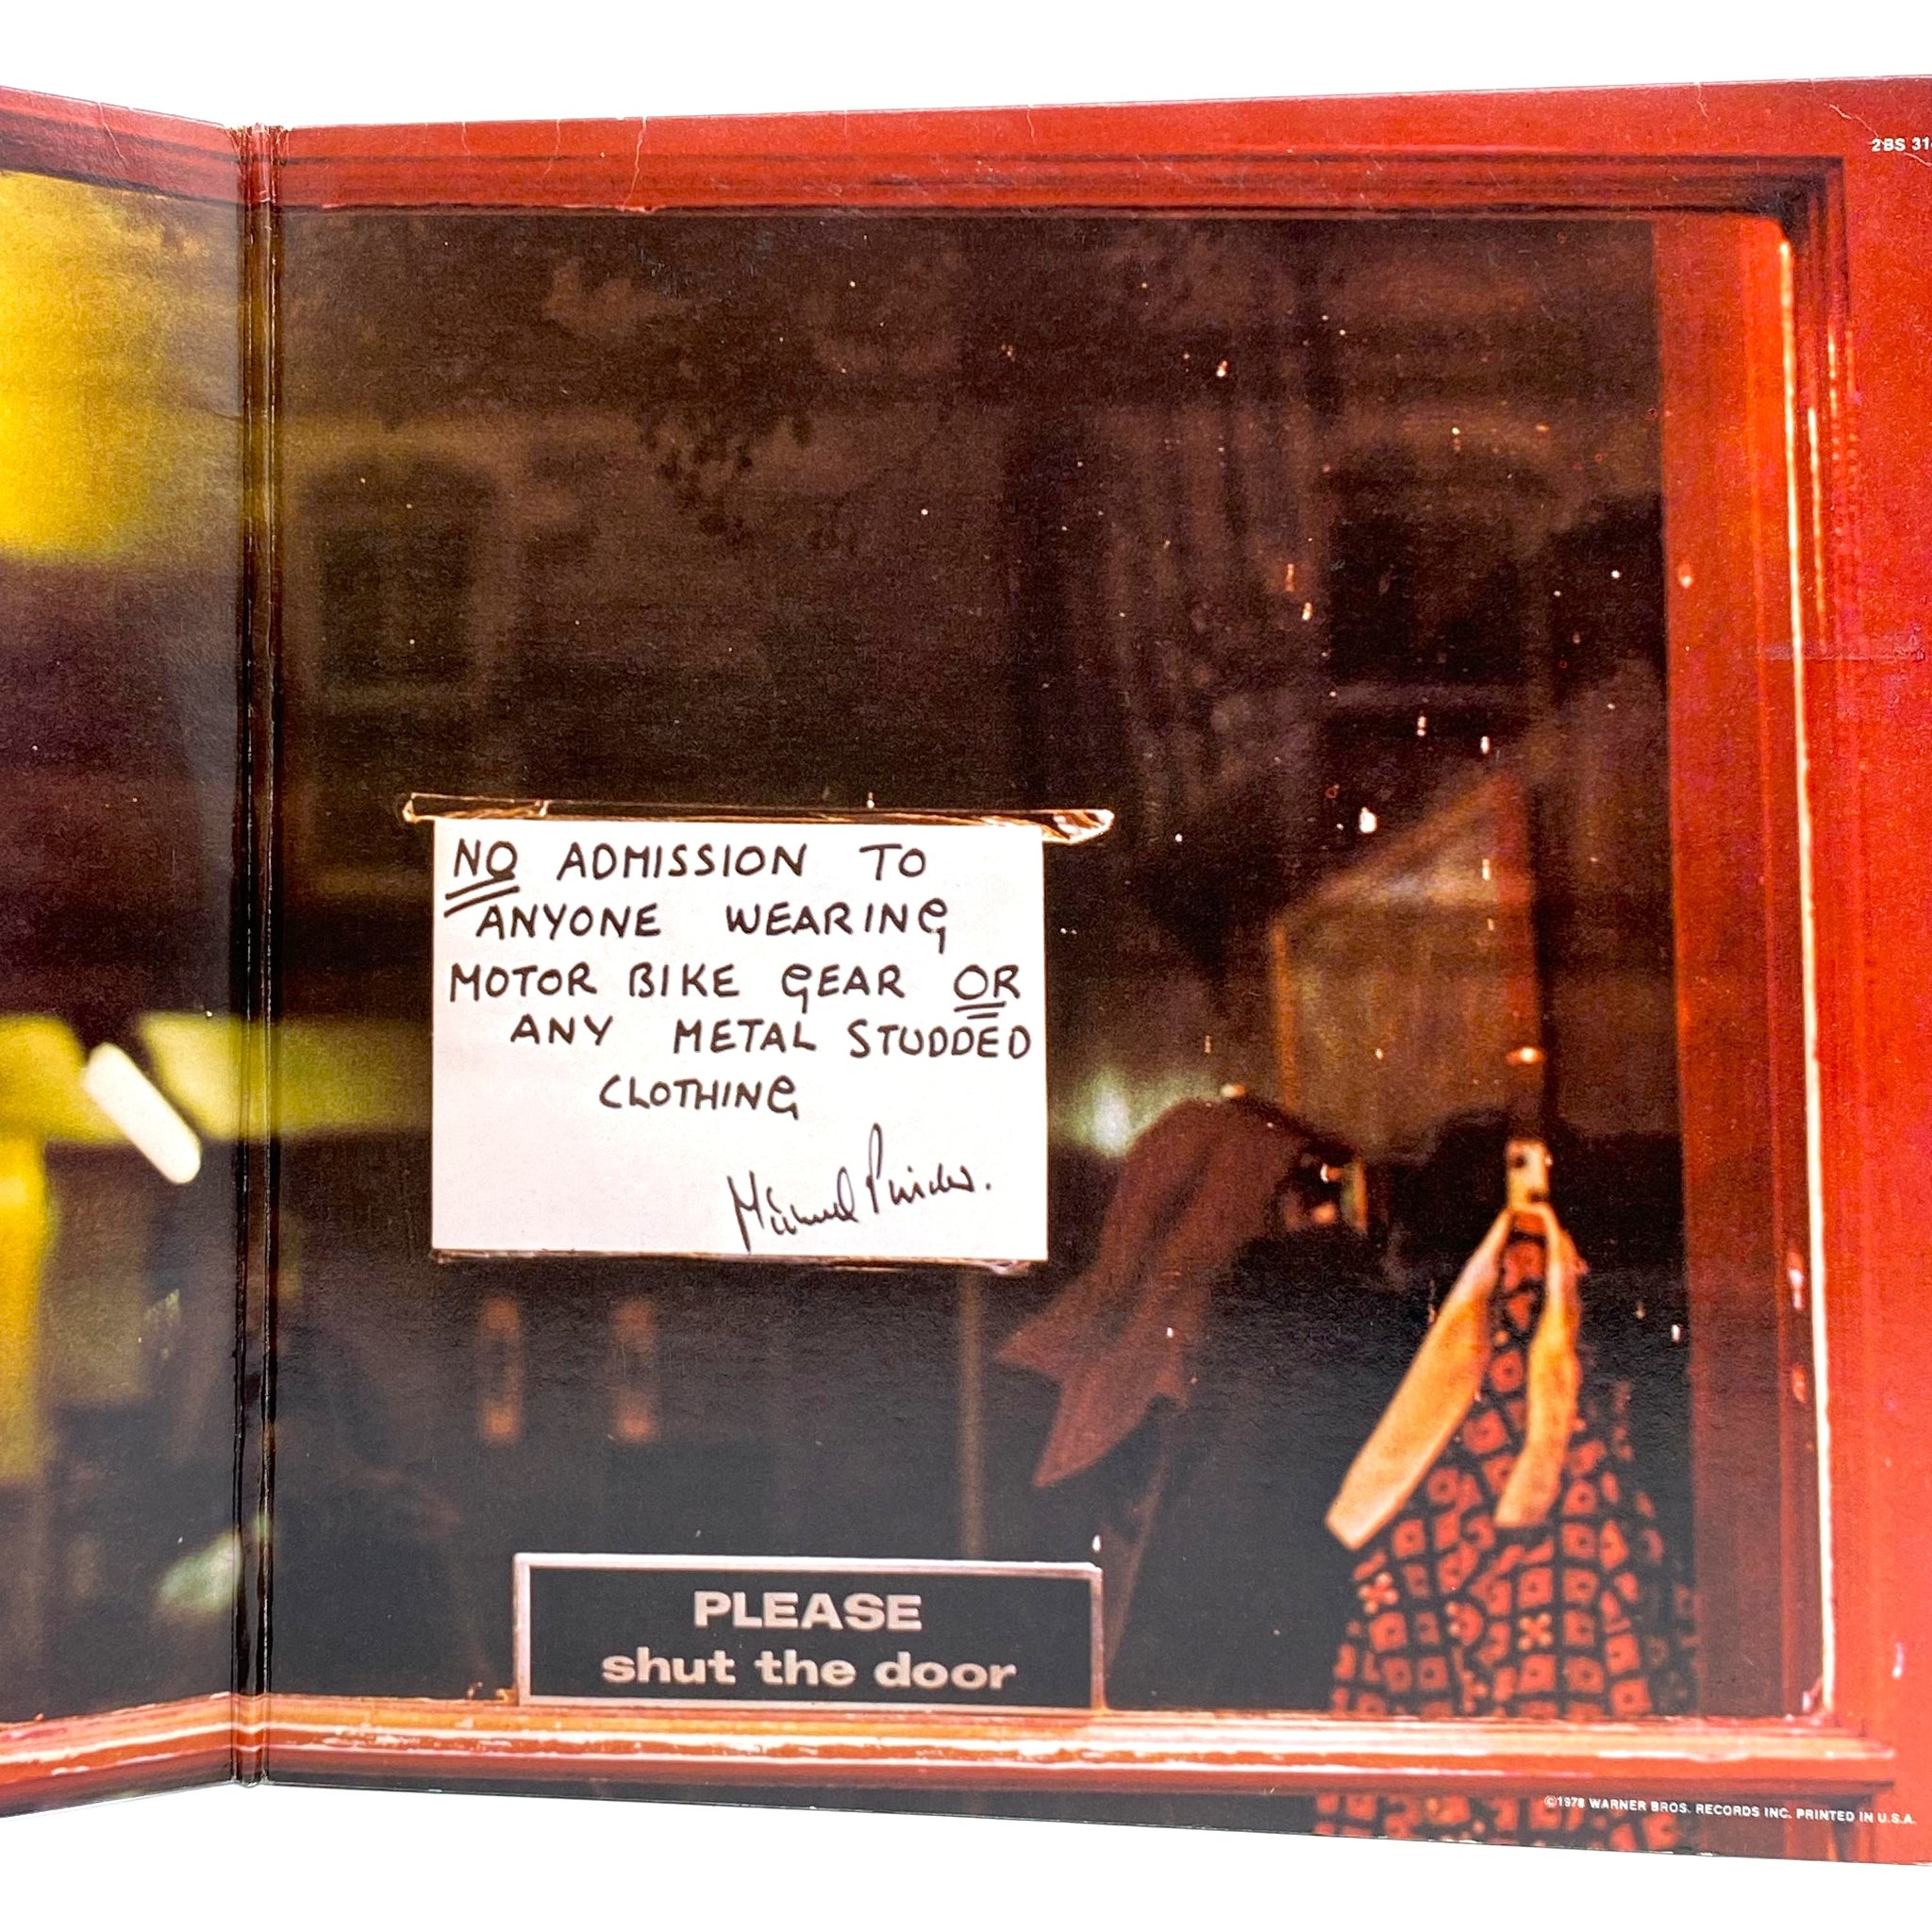 2BS 31
NO ADMISSION TO
ANYONE WEARING
MOTOR BIKE GEAR OR
ANY METAL STUDDED
CLOTHING
PLEASE
shut the door
©1978 WARNER BROS. RECORDS INC. PRINTED IN U.S.A.